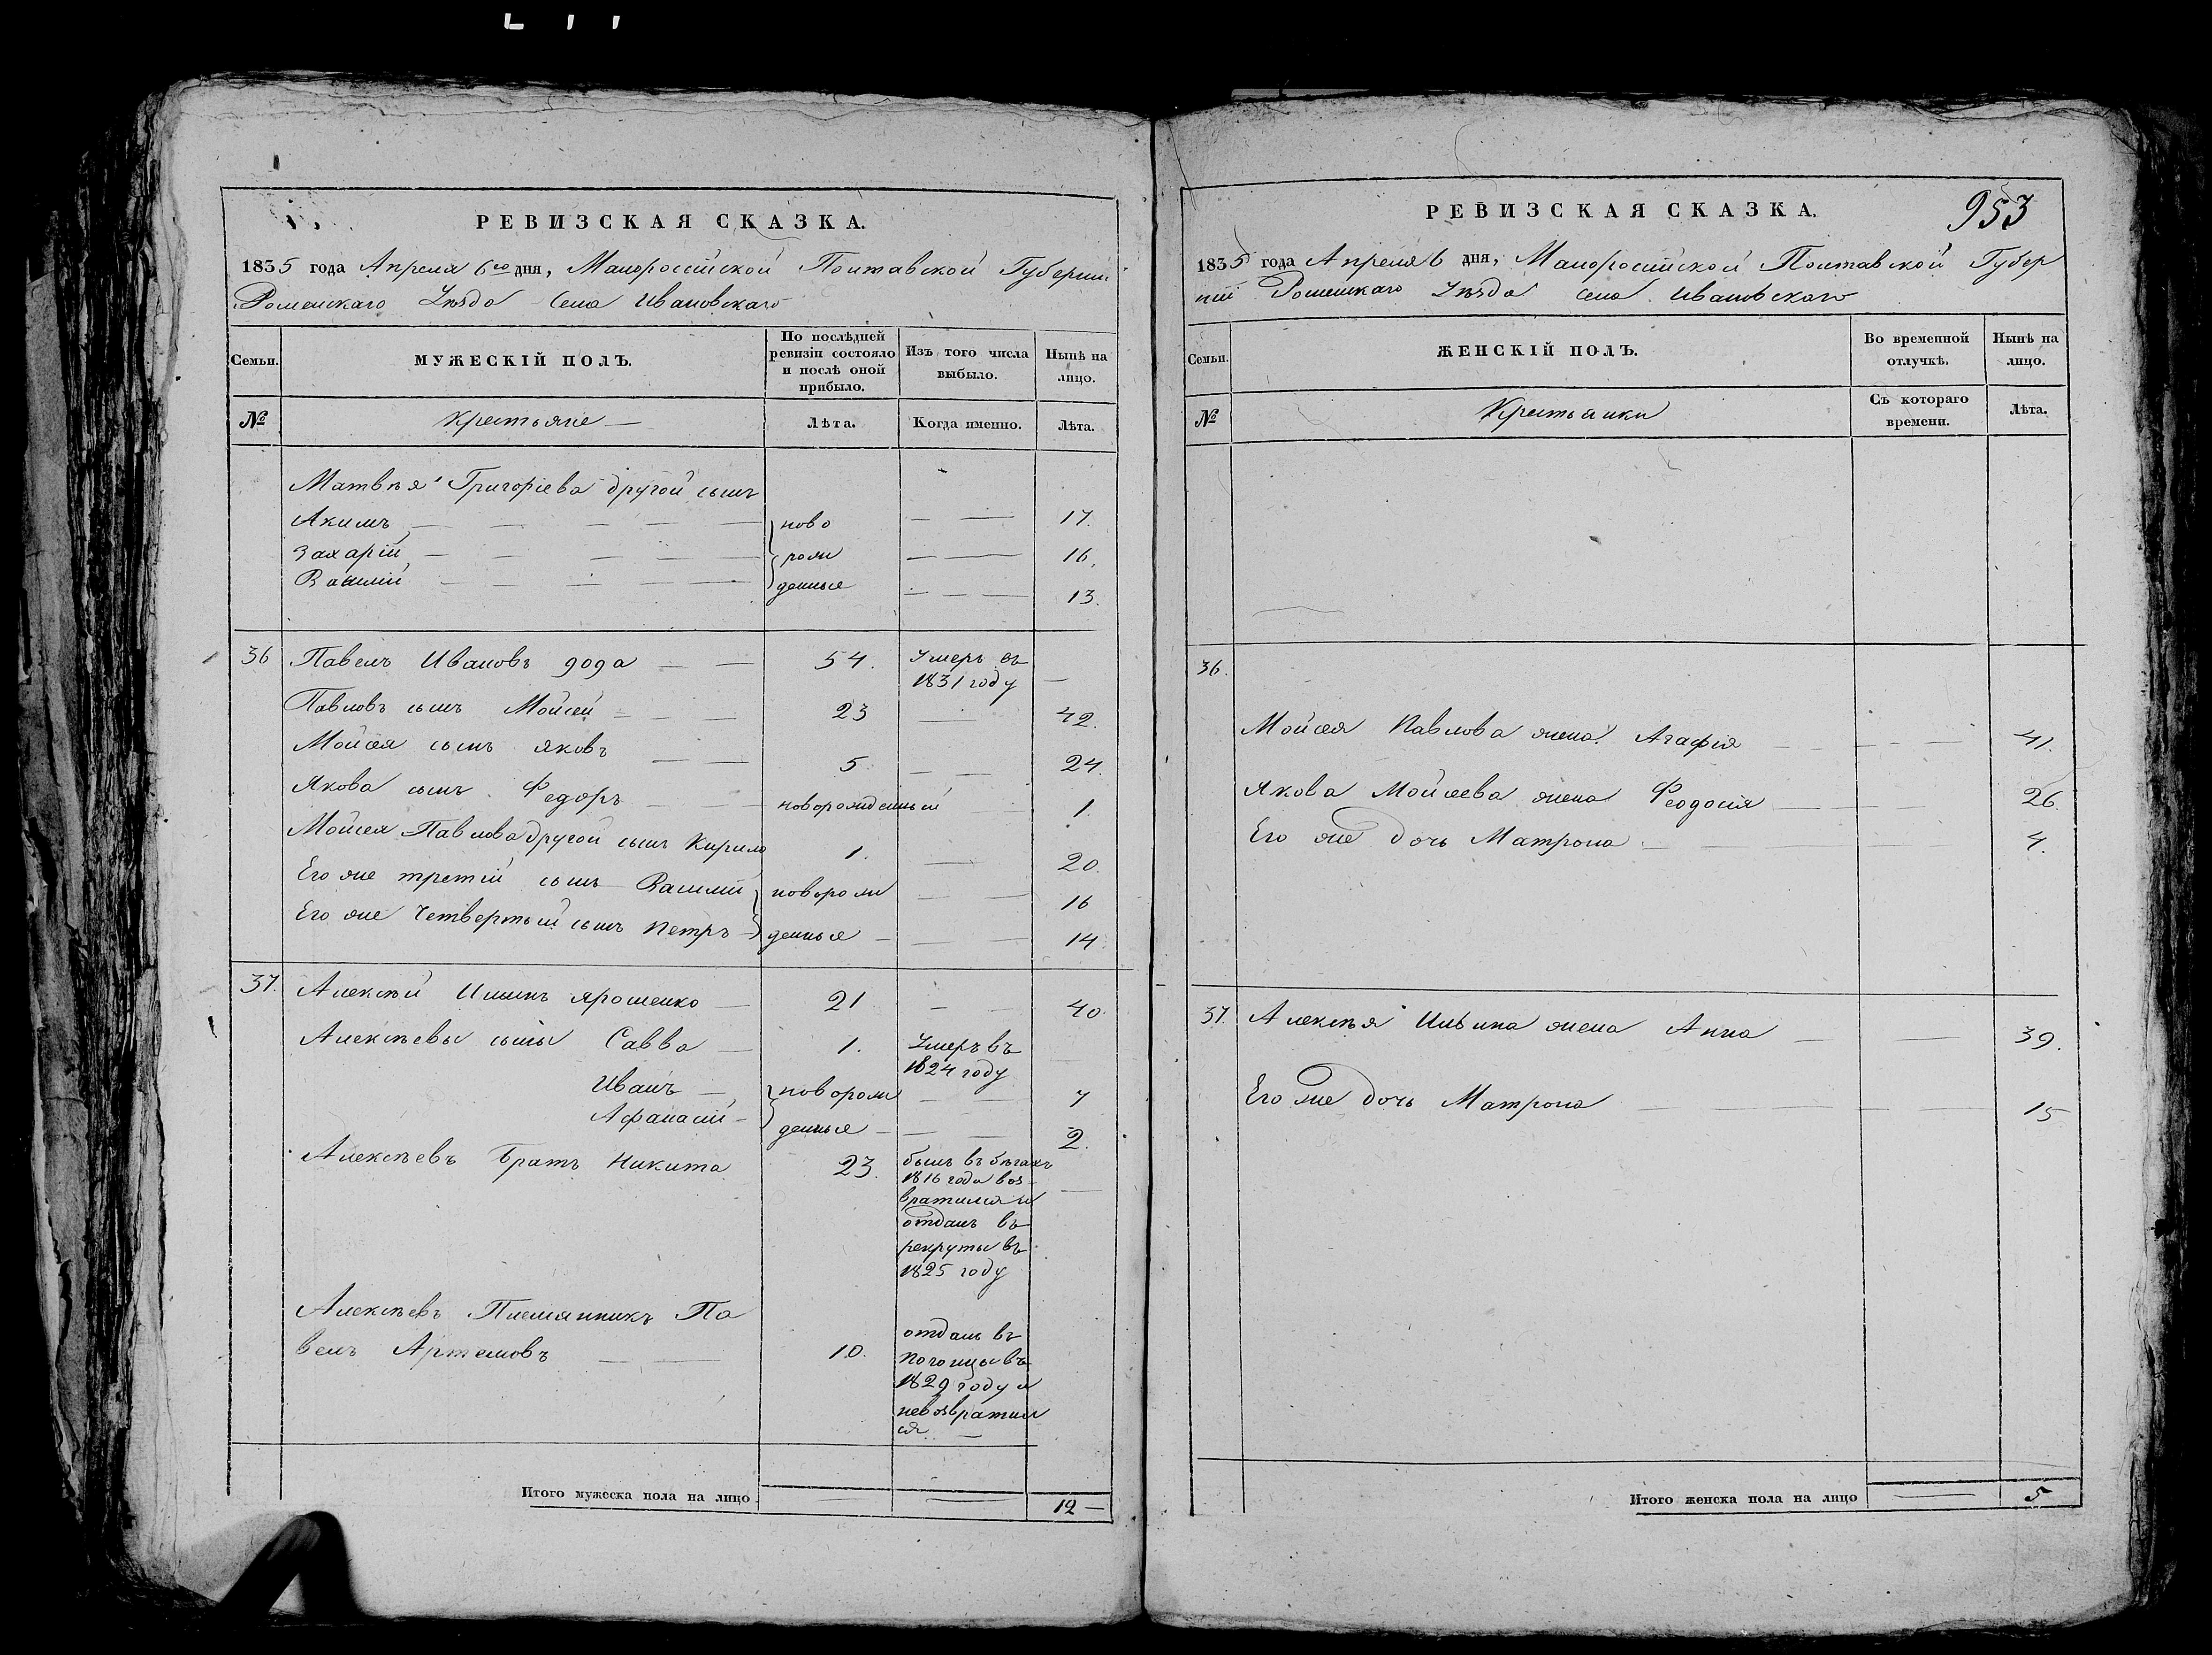 РЕВИЗСКАЯ СКАЗКА.
1835 года Апреля 6го дня, Малороссійской Полтавской Губерніи
Роменскаго Уѣзда Села Ивановскаго
Семьи.
МУЖЕСКІЙ ПОЛЪ.
По послѣдней ревизіи состояло и послѣ оной прибыло.
Изъ того числа выбыло.
Нынѣ на лицо.
№
Крестьяне
Лѣта.
Когда именно.
Лѣта.
Матвѣя Григоріева другой сынъ
Акимъ ново 17.
Захарій рож 16.
Василій денные 13.
36 Павелъ Ивановъ 54. Умеръ въ
1831 году
Павловъ сынъ Мойсей 23 42.
Мойсея сынъ Яковъ 5 24.
Якова сынъ Федоръ новорожденный 1.
Мойсея Павлова другой сынъ Кирило 1. 20.
Его же третій сынъ Василій новорож 16
Его же четвертый сынъ Петръ денные 14
37. Алексѣй Ильинъ Ярошенко 21 40.
Алексѣевы сыны Савва 1. Умеръ въ
1824 году
Иванъ новорож 7
Афанасій денные 2.
Алексѣевъ братъ Никита 23. былъ въ бѣгахъ
1816 года воз
вратился и
отданъ въ
рекруты въ
1825 году
Алексѣевъ Племянникъ Па
велъ Артемовъ 10. отданъ въ
погонцы въ
1829 году и
невозвратил
ся.
Итого мужеска пола на лицо 12
РЕВИЗСКАЯ СКАЗКА.
953
1835 года Апреля 6 дня, Малоросійской Полтавской Губер
ніи Роменскаго Уѣзда Села Ивановскаго
Семьи.
ЖЕНСКІЙ ПОЛЪ.
Во временной отлучкѣ.
Нынѣ на лицо.
№
Крестьянки
Съ котораго времени.
Лѣта.
36.
Мойсея Павлова жена Агафія 41.
Якова Мойсеева жена Феодосія 26.
Его же дочь Матрона 4.
37. Алексѣя Ильина жена Анна 39.
Его же дочь Матрона 15
Итого женска пола на лицо 5